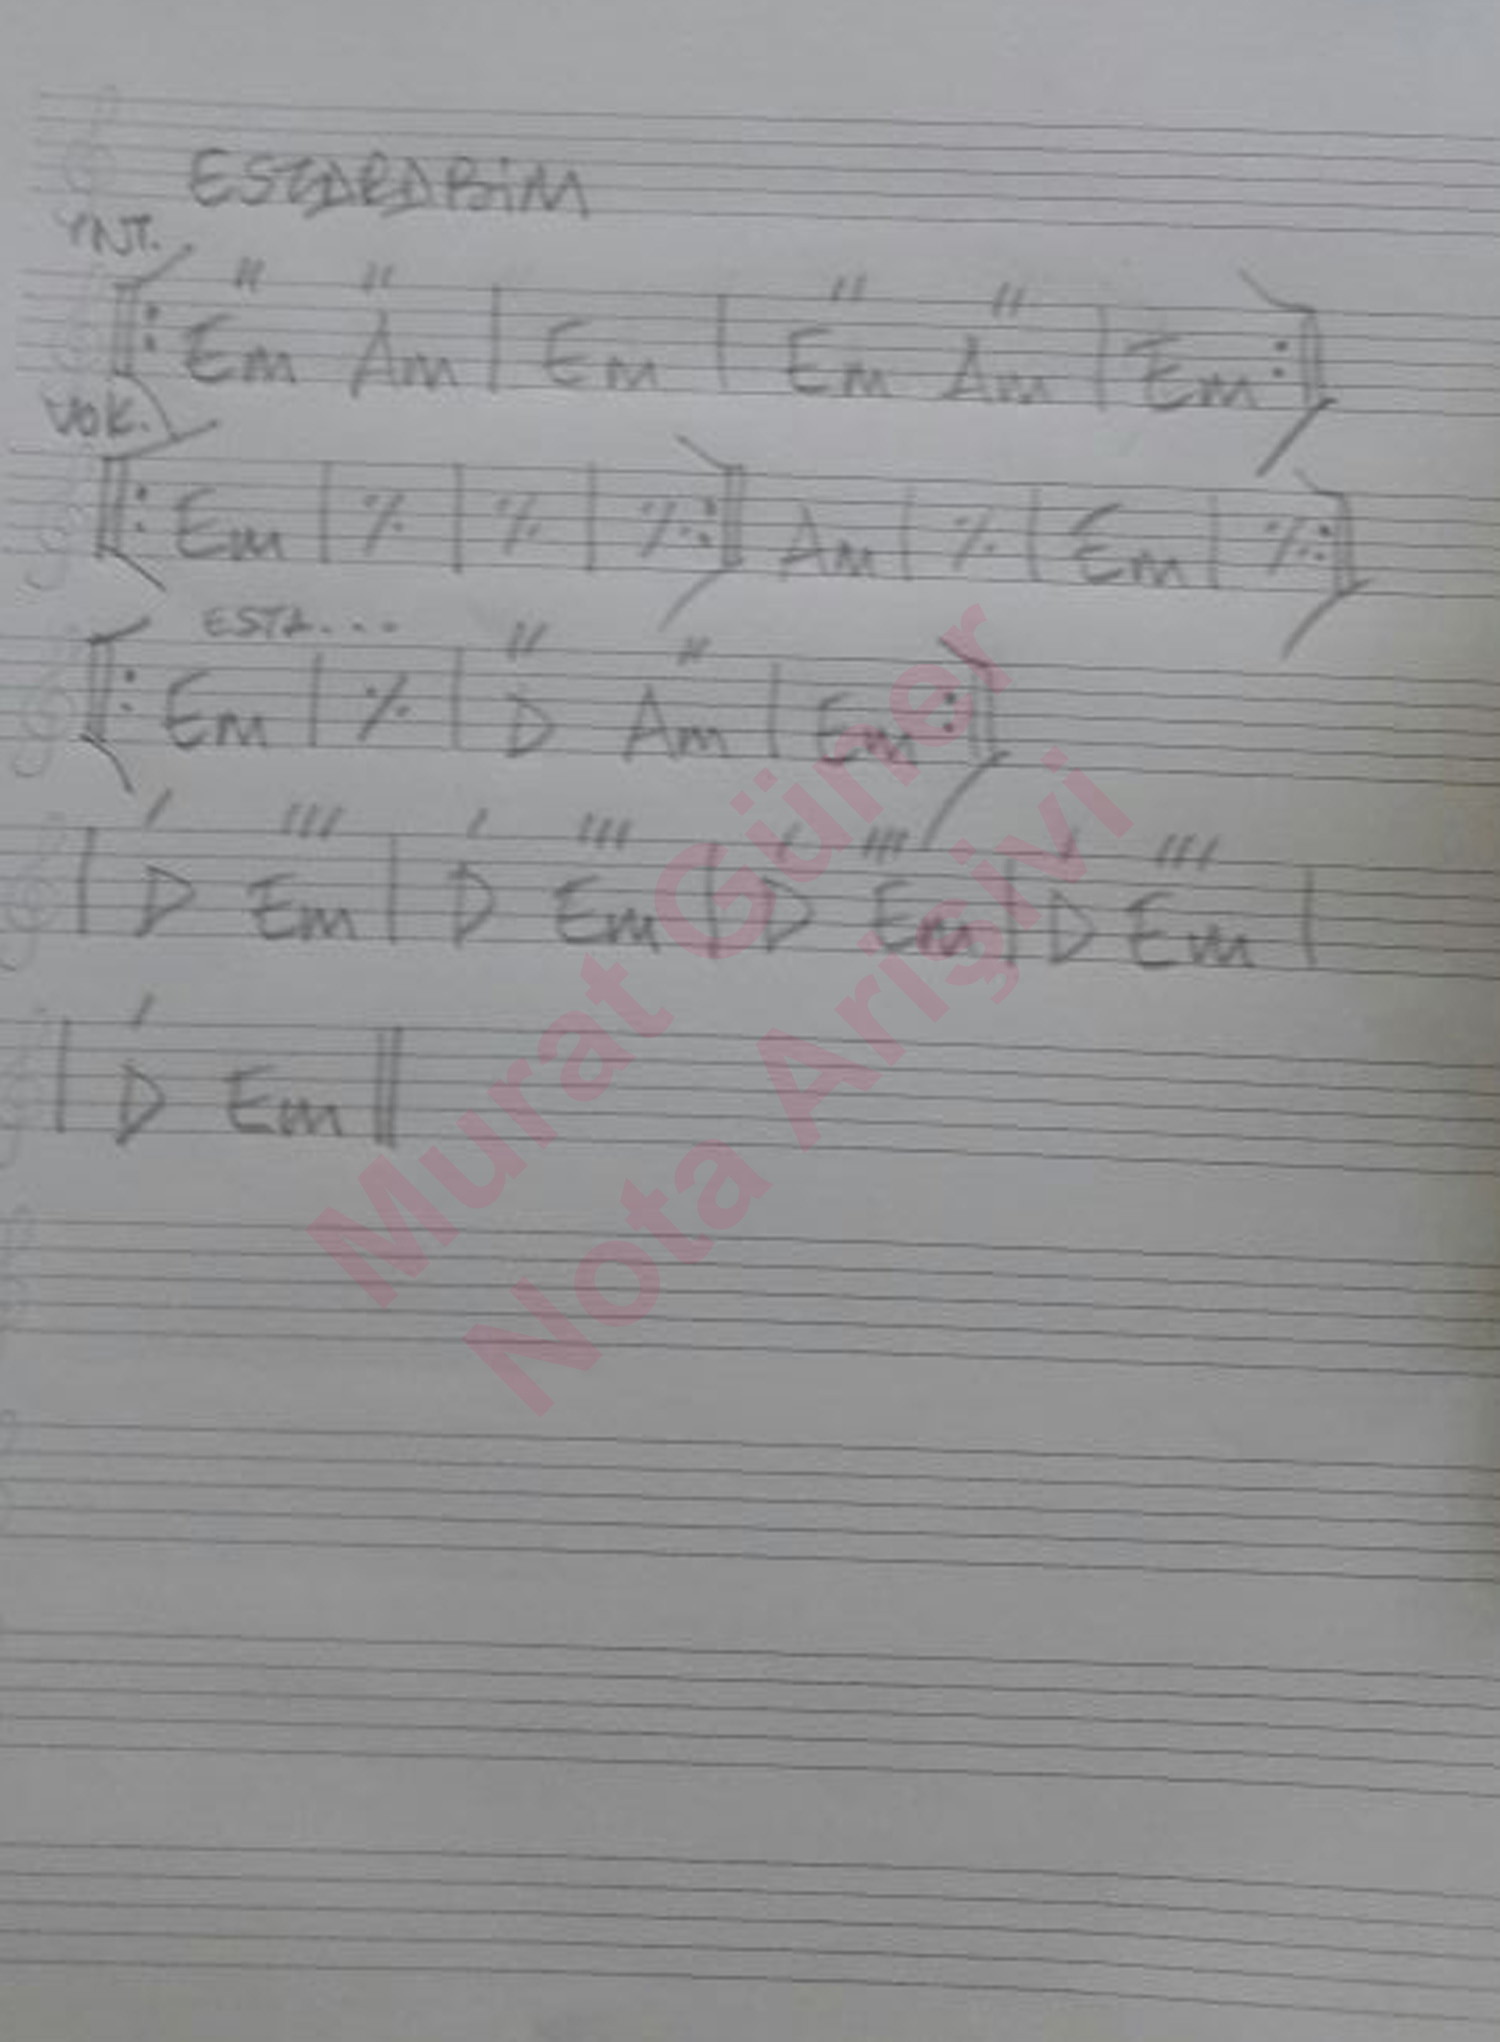 ESTARABİM
İNT.
" "  " "
‖: Em Am | Em | Em Am | Em :‖
VOK.
‖: Em | ٪ | ٪ | ٪ :‖ Am | ٪ | Em | ٪ :‖
ESTA...
" "
‖: Em | ٪ | D Am | Em :‖
/ /// / /// / /// / ///
| D Em | D Em | D Em | D Em |
/
| D Em ‖
Murat Güner
Nota Arişivi